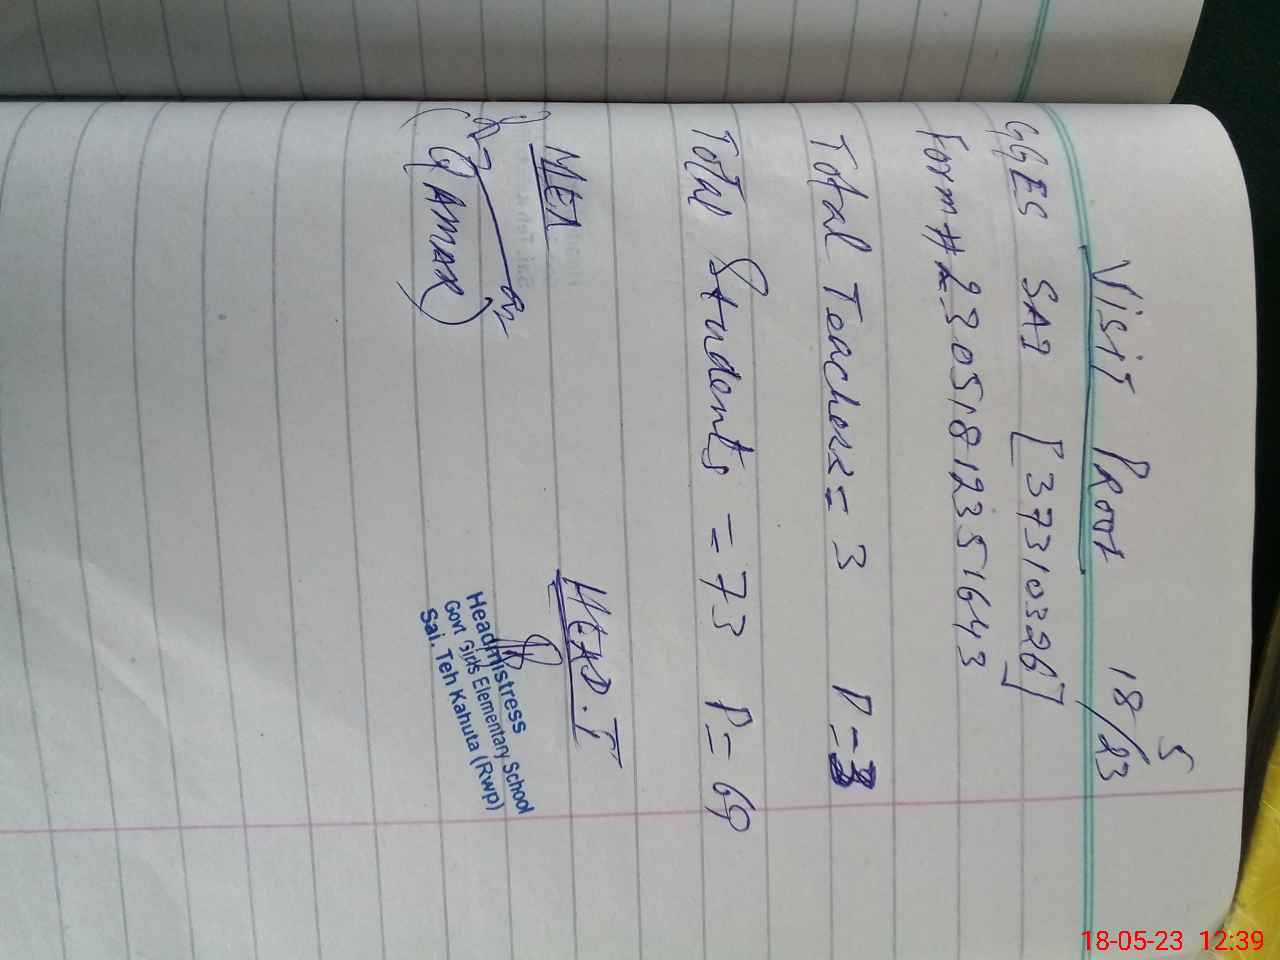 Visit Proof 18/5/23
GGES SAI [37310326]
Form # 23051812351643
Total Teachers = 3 P = 3
Total Students = 73 P = 69
MEA HEAD.T
(QAMAR)
Headmistress
Govt Girls Elementary School
Sai. Teh Kahuta (Rwp)
18-05-23 12:39